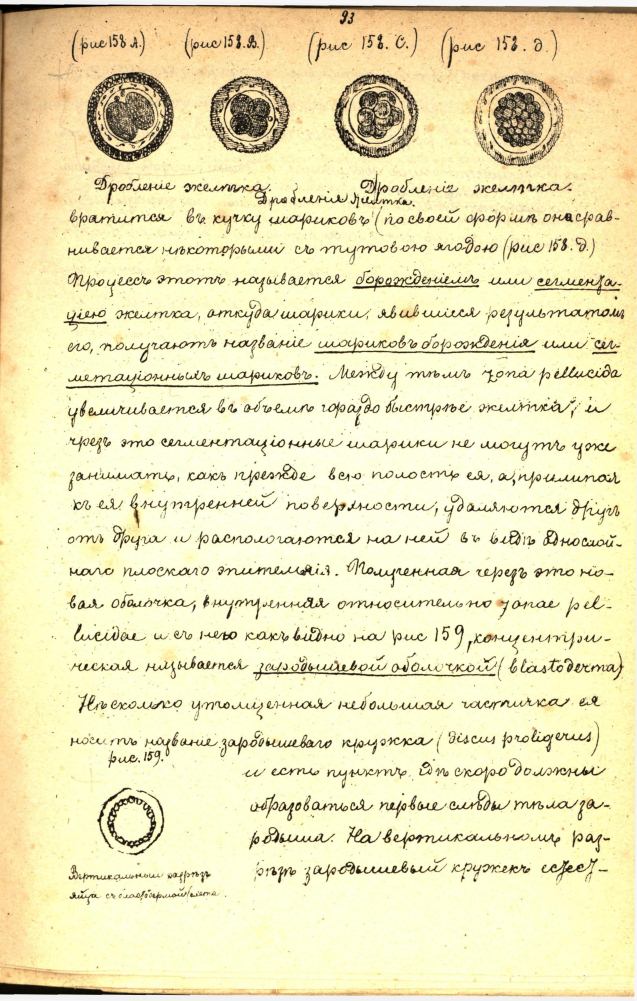 93
(рис 158 А.) (рис 158. В.) (рис 158. С.) (рис 158. д.)
Дробленіе желтка. Дробленія желтка. Дробленіе желтка.
вратится въ кучку шариковъ (по своей формѣ она срав-
нивается нѣкоторыми съ тутовою ягодою (рис 158. д.)
Процессъ этотъ называется борожденіемъ или сегмента-
ціею желтка, откуда шарики, явившіеся результатомъ
его, получаютъ названіе шариковъ борожденія или сег-
метаціонныхъ шариковъ. Между тѣмъ zona pellucida
увеличивается въ объемѣ гораздо быстрѣе желтка, и
чрезъ это сегментаціонные шарики не могутъ уже
занимать, какъ прежде всю полость ея, а, прилипая
къ ея внутренней поверхности, удаляются другъ
отъ друга и распологаются на ней въ видѣ однослой-
наго плоскаго эпителія. Полученная черезъ это но-
вая оболочка, внутренняя относительно zonae pel-
lucidae и съ нею какъ видно на рис 159, концентри-
ческая называется зародышевой оболочкой (blastoderma)
Нѣсколько утолщенная небольшая частичка ея
носитъ названіе зародышеваго кружка (discus proligerus)
рис. 159.
и есть пунктъ, гдѣ скоро должны
образоваться первые слѣды тѣла за-
родыша. На вертикальномъ раз-
рѣзѣ зародышевый кружекъ
Вертикальный разрѣзъ
яйца съ бластодермой